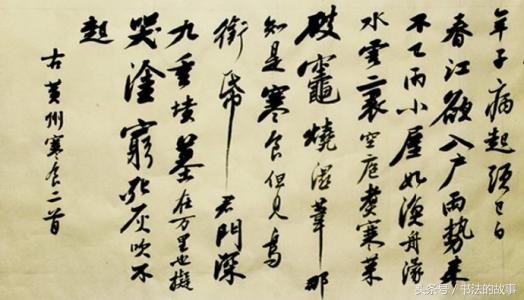 年子病起須已白
春江欲入户雨勢来
不已雨小屋如漁舟濛
水雲裏空庖煮寒菜
破竈燒濕葦那
知是寒食但見烏
銜帋君門深
九重墳墓在万里也擬
哭塗窮死灰吹不
起
右黄州寒食二首
头条号 / 书法的故事